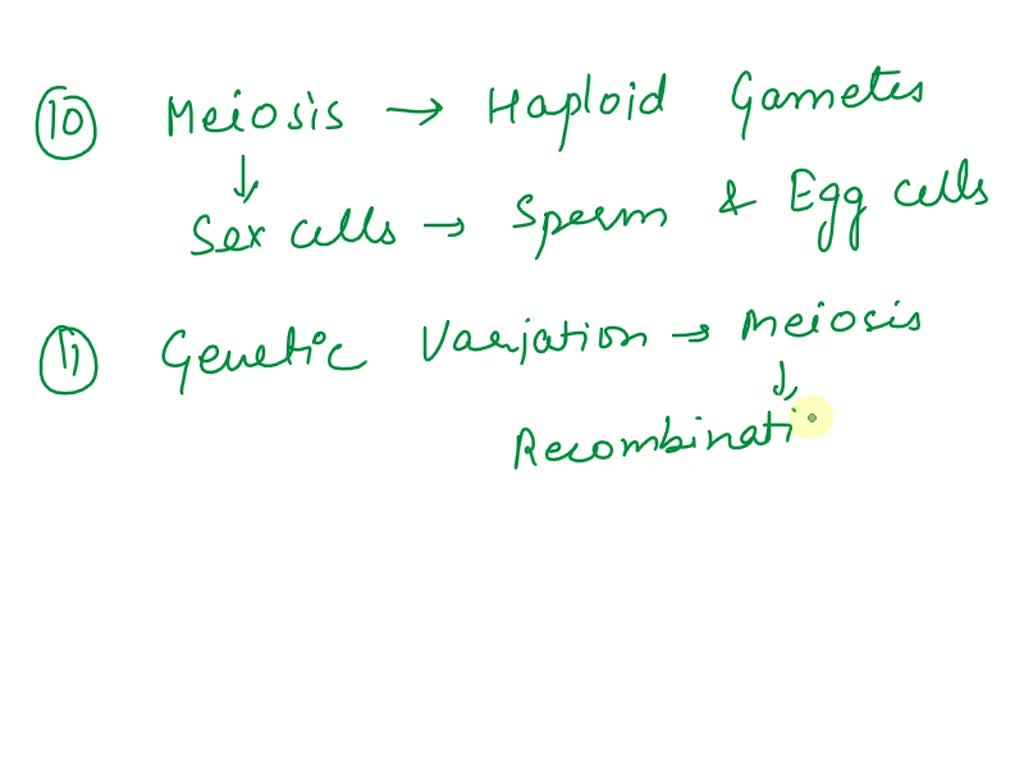 10 Meiosis → Haploid Gametes
↓
Sex cells → Sperm & Egg cells
11 Genetic Variation → Meiosis
↓
Recombinati